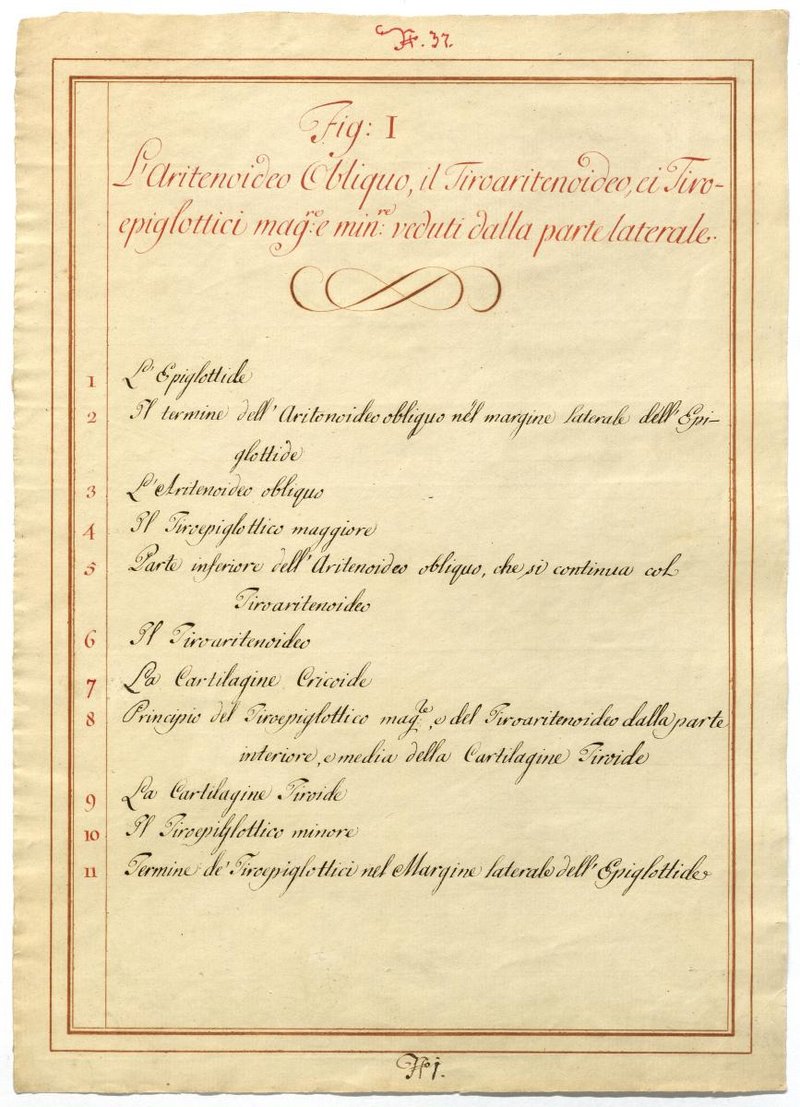 N. 37.
Fig: I
L'Aritenoideo Obliquo, il Tiroaritenoideo, ei Tiro-
epiglottici magre: e minre: veduti dalla parte laterale.
1 L'Epiglottide
2 Il termine dell'Aritonoideo obliquo nel margine laterale dell'Epi-
glottide
3 L'Aritenoideo obliquo
4 Il Tiroepiglottico maggiore
5 Parte inferiore dell'Aritenoideo obliquo, che si continua col
Tiroaritenoideo
6 Il Tiroaritenoideo
7 La Cartilagine Cricoide
8 Principio del Tiroepiglottico magre:, e del Tiroaritenoideo dalla parte
interiore, e media della Cartilagine Tiroide
9 La Cartilagine Tiroide
10 Il Tiroepiglottico minore
11 Termine de' Tiroepiglottici nel Margine laterale dell'Epiglottide
No 1.